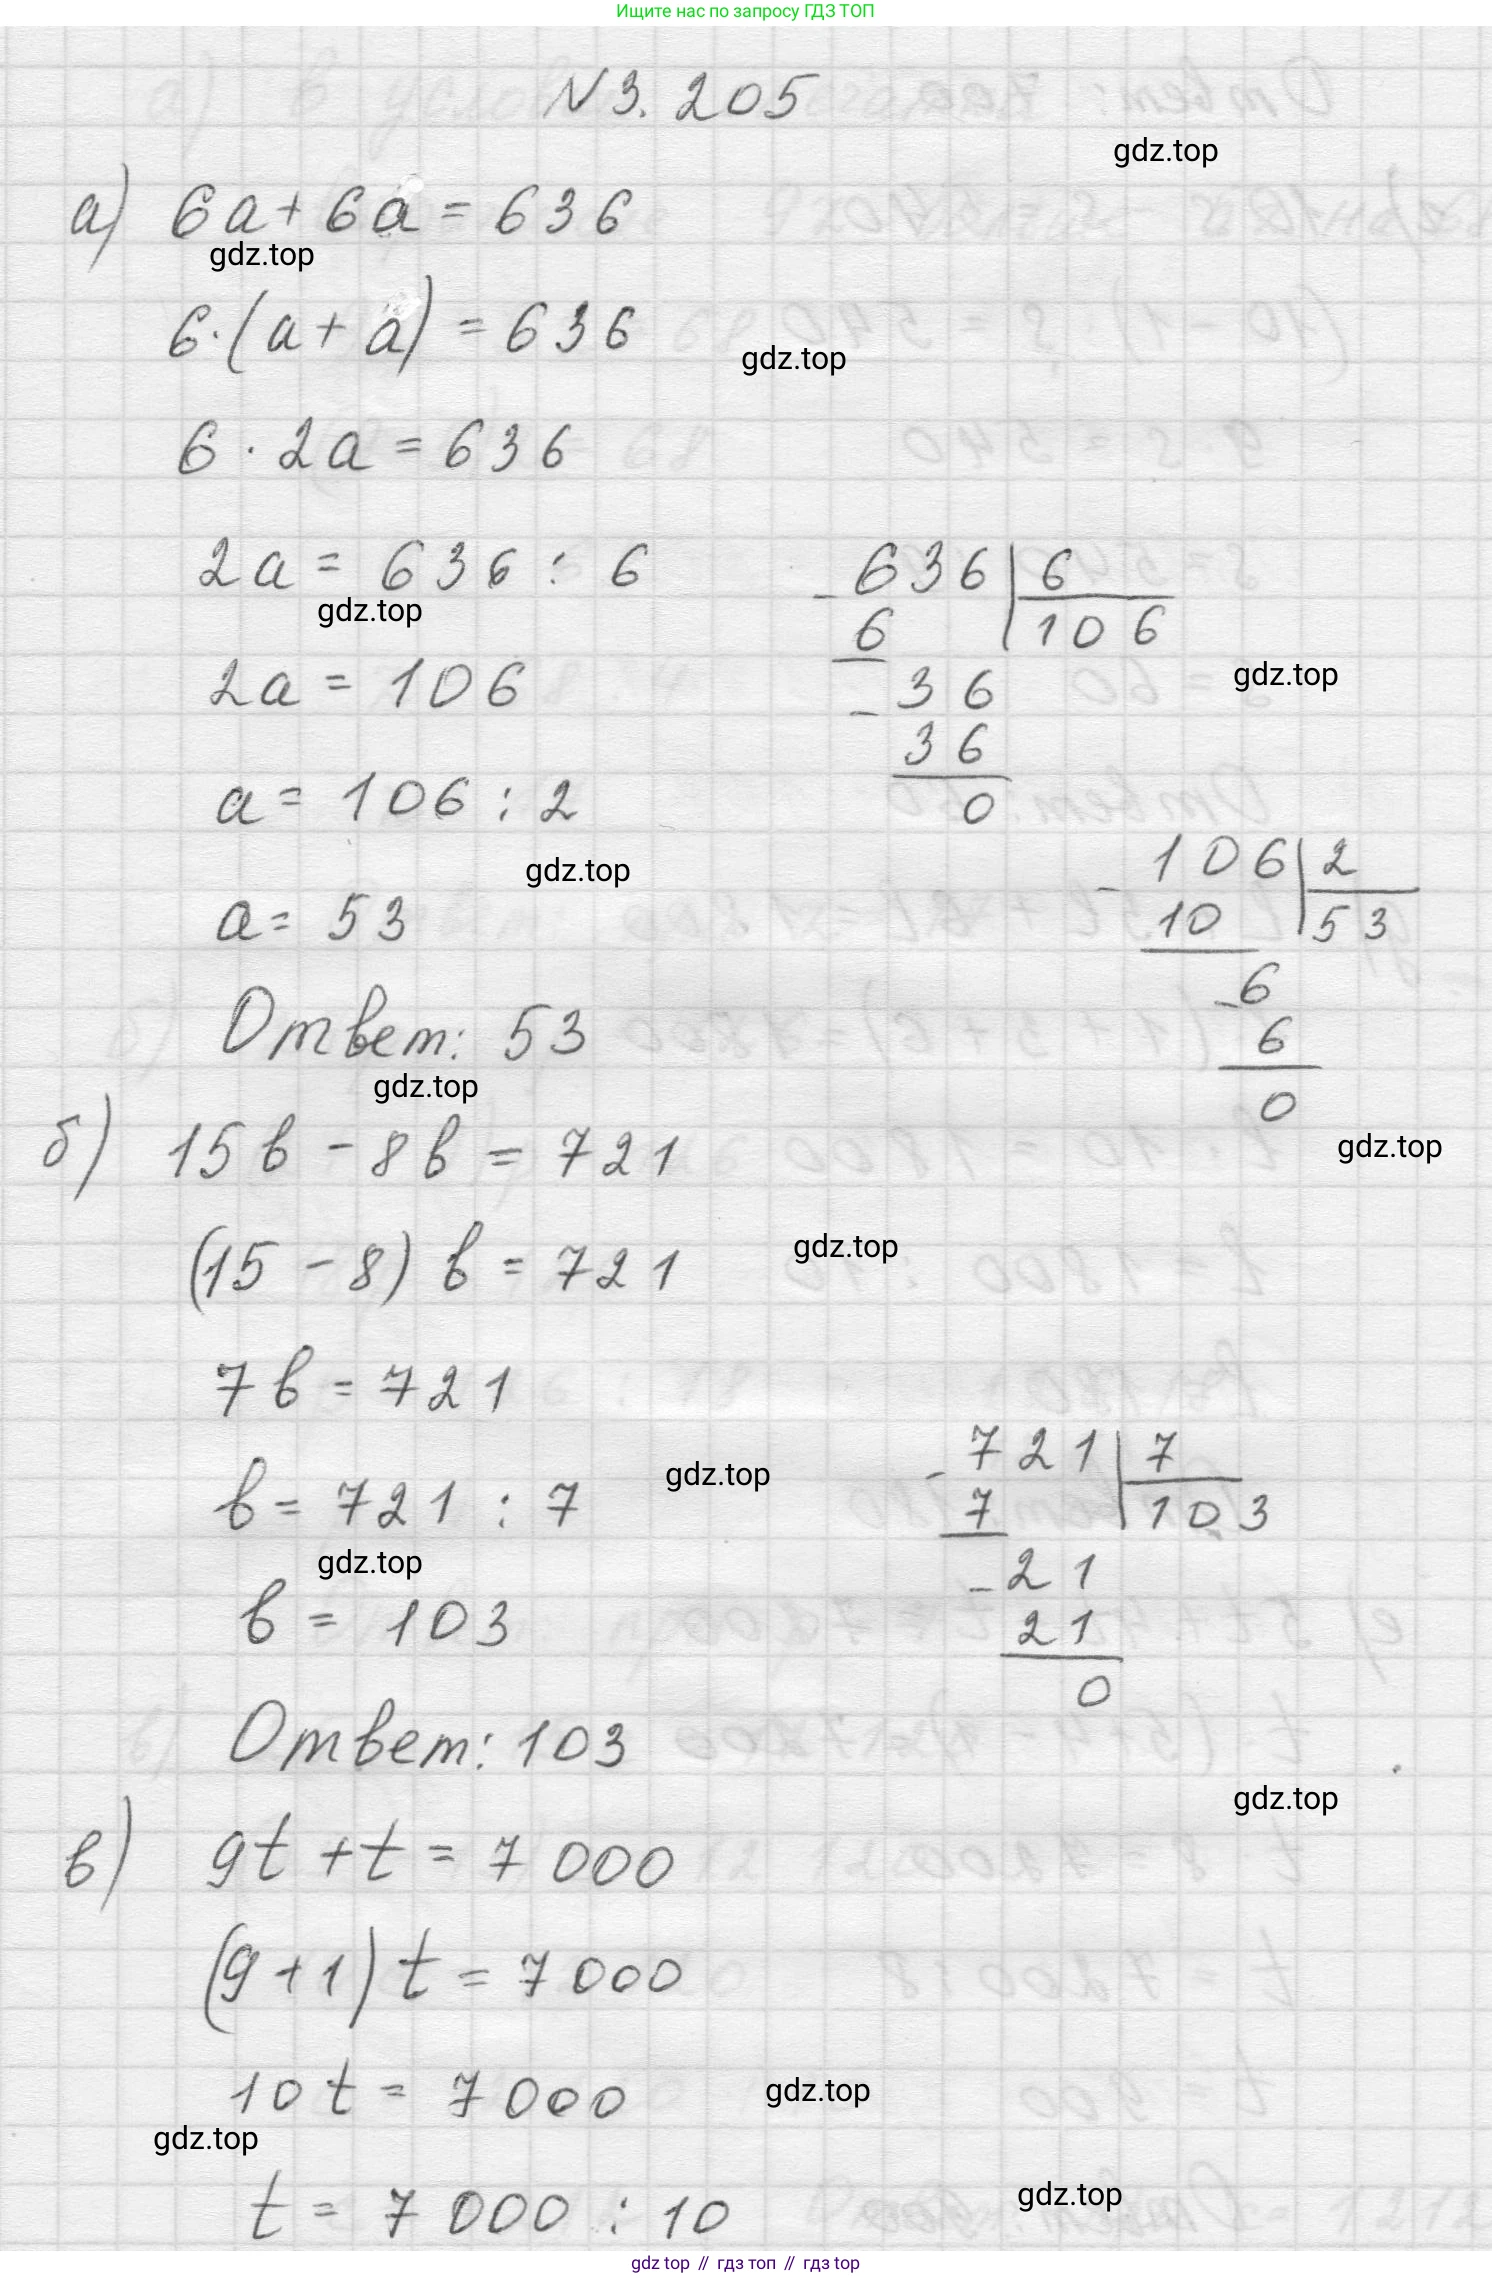 Ищите нас по запросу ГДЗ ТОП
N 3.205
gdz.top
а) 6a + 6a = 636
gdz.top
6·(a + a) = 636
gdz.top
6 · 2a = 636
2a = 636 : 6
gdz.top
636 | 6
- 6 | 106
2a = 106
36
gdz.top
- 36
0
a = 106 : 2
gdz.top
106 | 2
- 10 | 53
a = 53
- 6
6
0
Ответ: 53
gdz.top
б) 15b - 8b = 721
gdz.top
(15 - 8) b = 721
gdz.top
7b = 721
b = 721 : 7
gdz.top
721 | 7
- 7 | 103
- 21
21
0
gdz.top
b = 103
Ответ: 103
gdz.top
в) 9t + t = 7 000
(9 + 1) t = 7 000
10 t = 7 000
gdz.top
gdz.top
t = 7 000 : 10
gdz.top
gdz top // гдз топ // гдз top